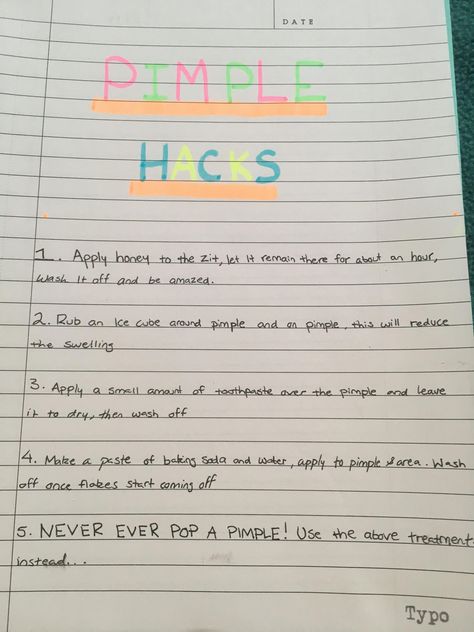 DATE
PIMPLE
HACKS
1. Apply honey to the zit, let it remain there for about an hour,
wash it off and be amazed.
2. Rub an Ice cube around pimple and on pimple, this will reduce
the swelling
3. Apply a small amount of toothpaste over the pimple and leave
it to dry, then wash off
4. Make a paste of baking soda and water, apply to pimple & area. Wash
off once flakes start coming off
5. NEVER EVER POP A PIMPLE! Use the above treatment
instead...
Typo